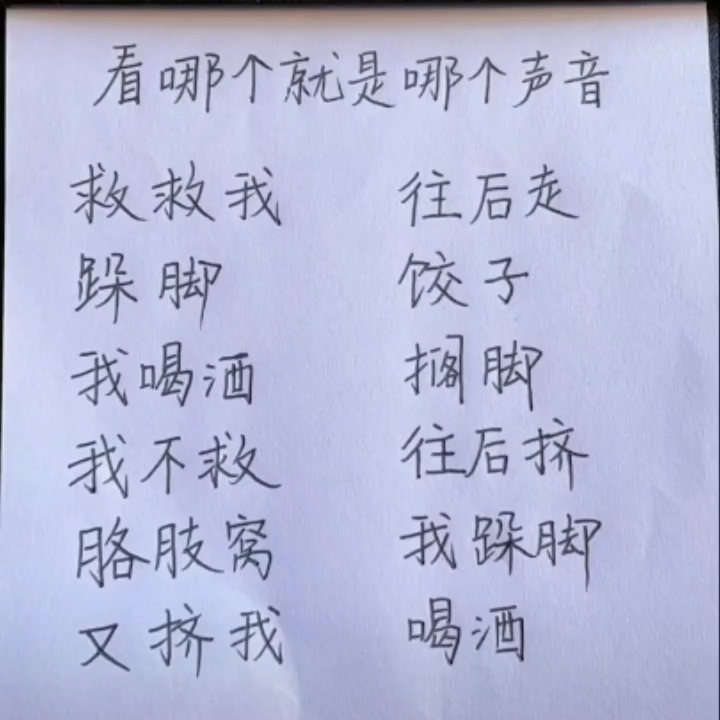 看哪个就是哪个声音
救救我 往后走
跺脚 饺子
我喝酒 搁脚
我不救 往后挤
胳肢窝 我跺脚
又挤我 喝酒